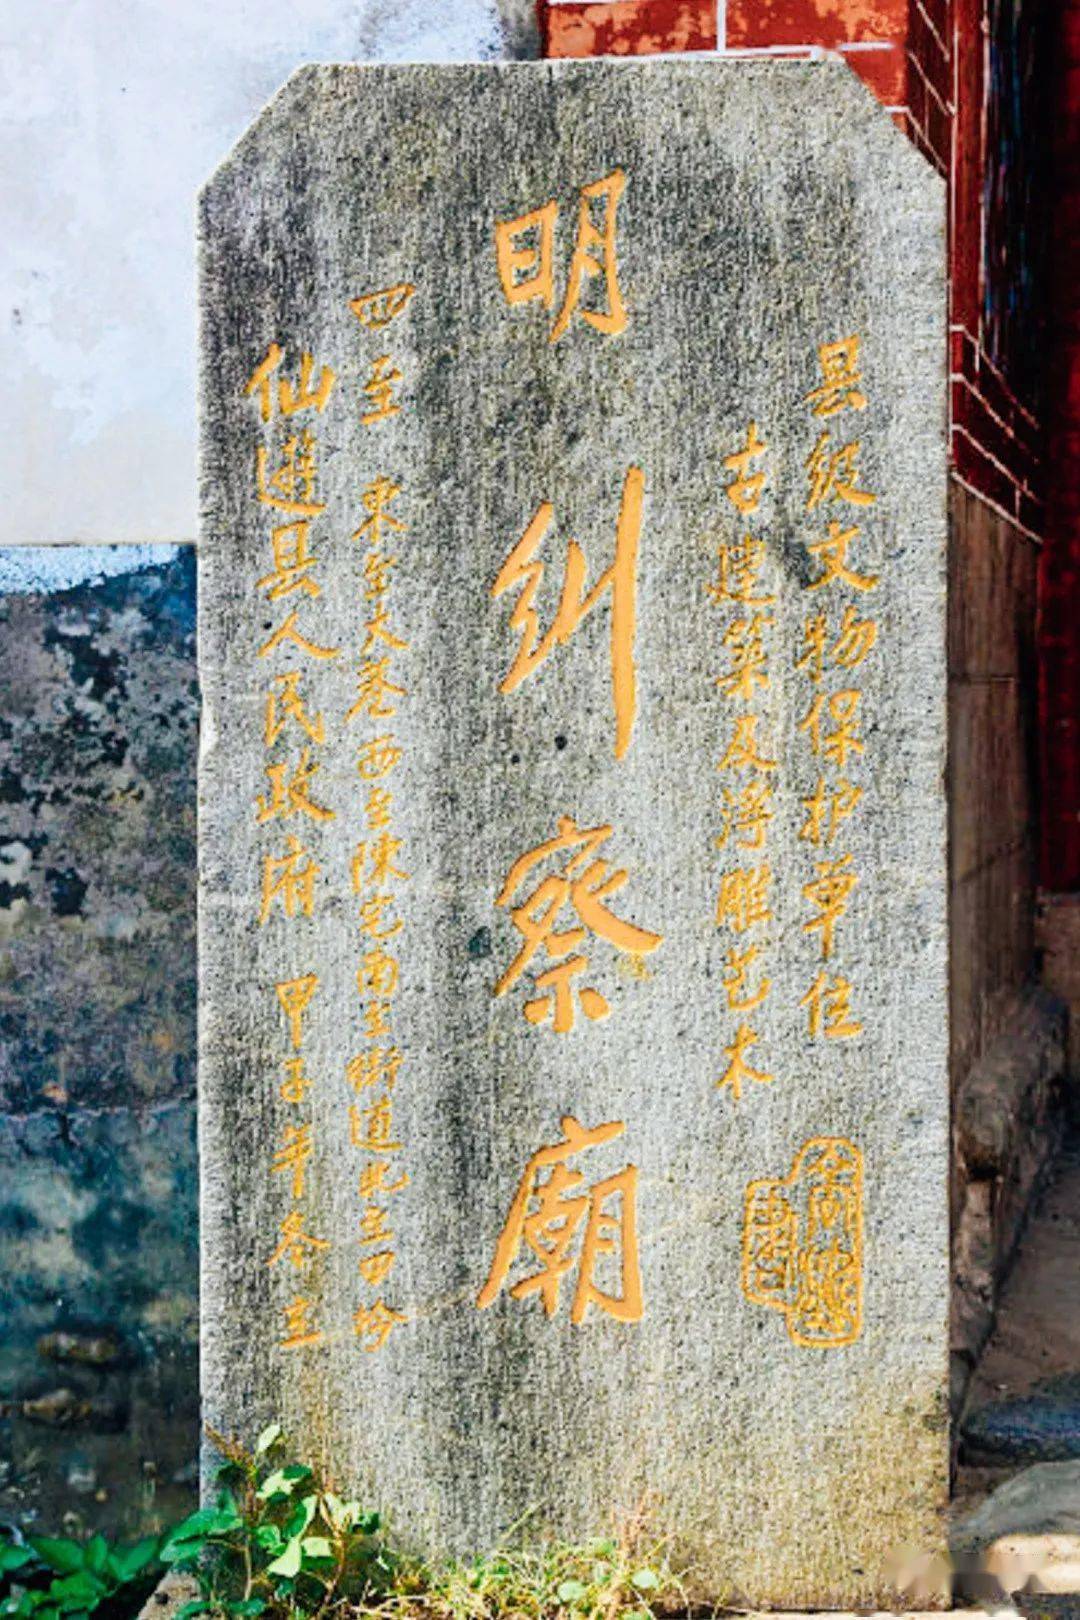 县级文物保护单位
古建筑及浮雕艺术
明糾察廟
四至 東至大巷西至陳宅南至街道北至田岭
仙遊县人民政府 甲子年冬立